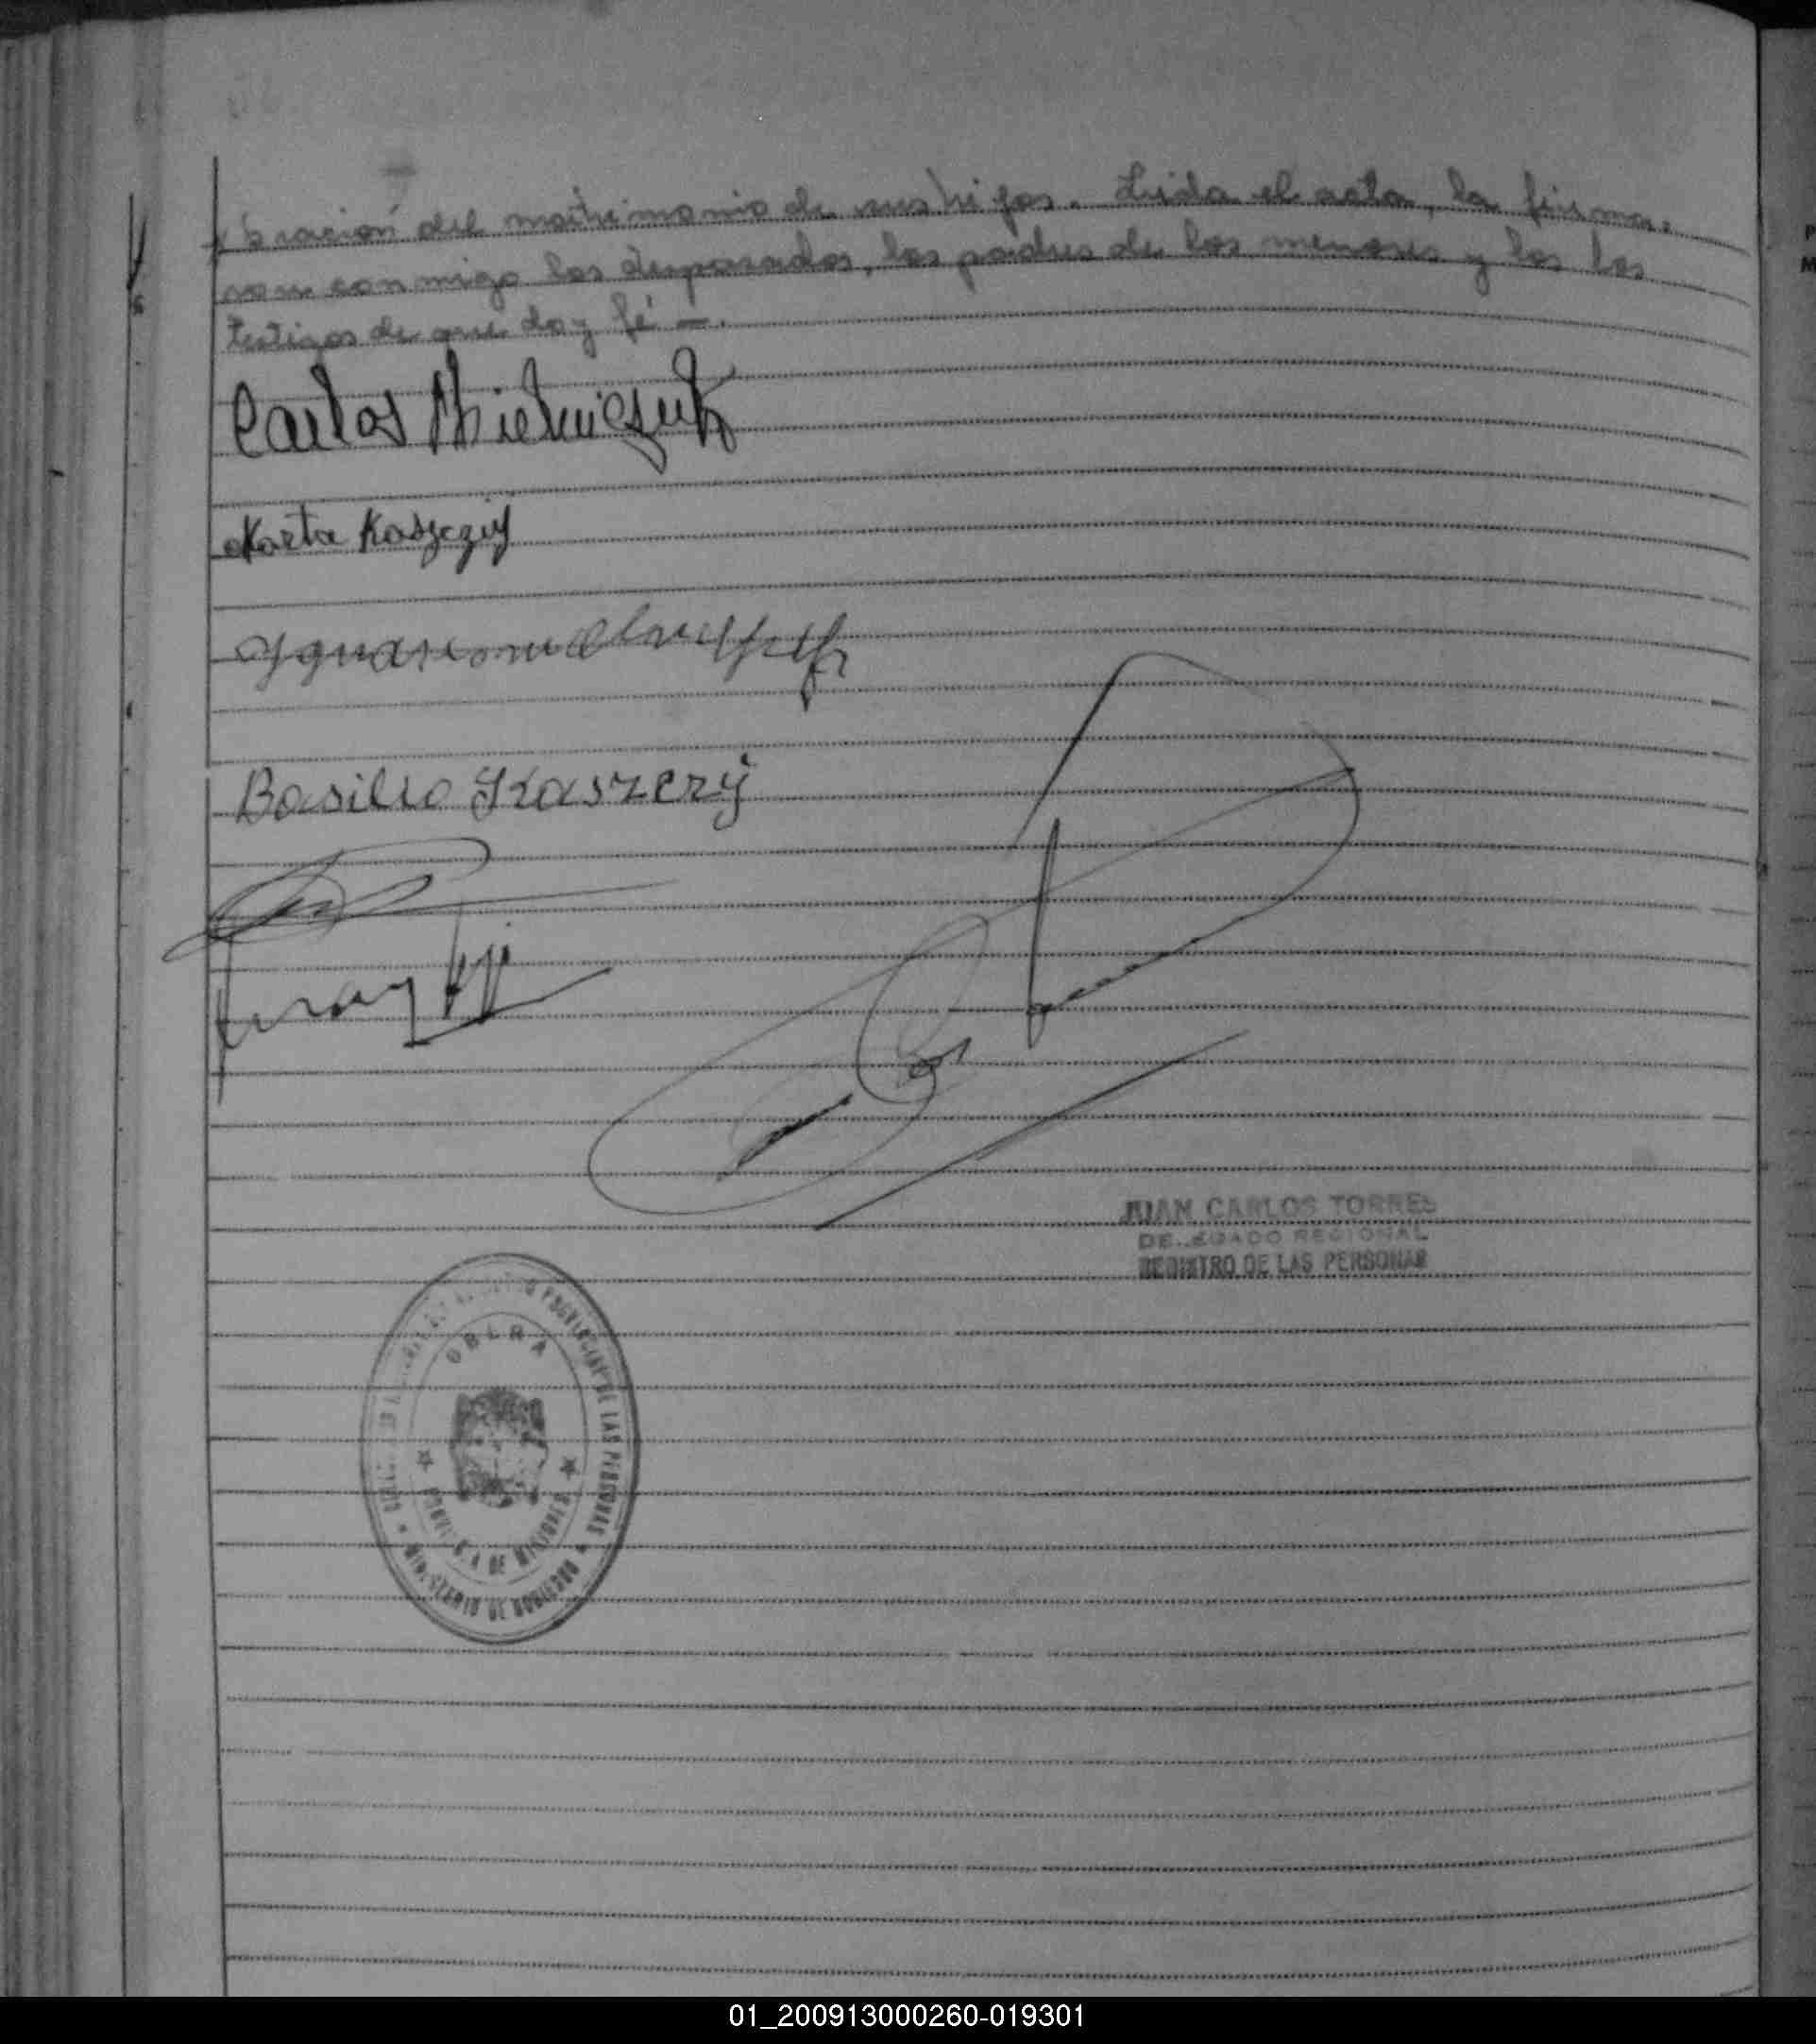 bración del matrimonio de sus hijos. Leida el acta, la firma.
ron conmigo los desposados, los padres de los menores y los los
testigos de que doy fé —.
Carlos Mielniczuk
Marta Kaszczij
Basilio Kaszczij
JUAN CARLOS TORRES
DELEGADO REGIONAL
REGISTRO DE LAS PERSONAS
PROVINCIAL DE LAS PERSONAS
OBERA
PROVINCIA DE MISIONES
MINISTERIO DE GOBIERNO
01_200913000260-019301